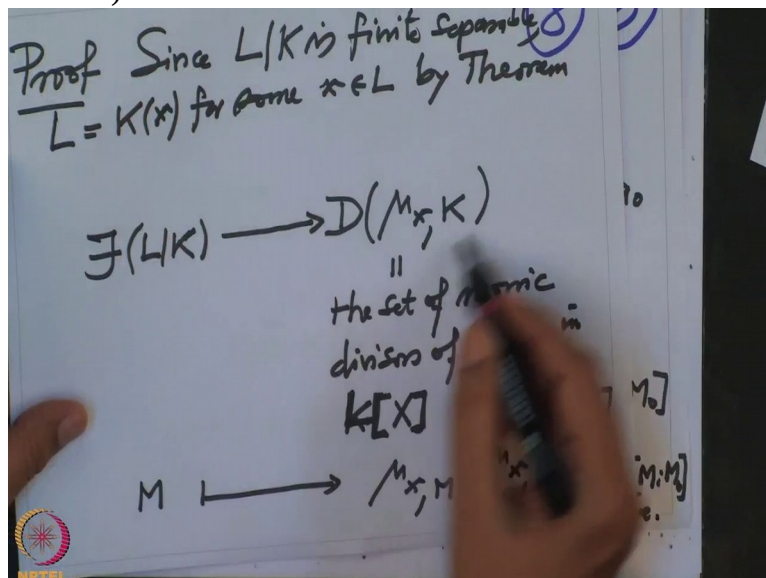 Proof Since L/K is finite separable
L = K(x) for some x ∈ L by Theorem
8
F(L/K) ⟶ D(μx,K)
||
the set of monic
divisors of in
K[X]
M ⟼ μx,M
M₀]
NPTEL